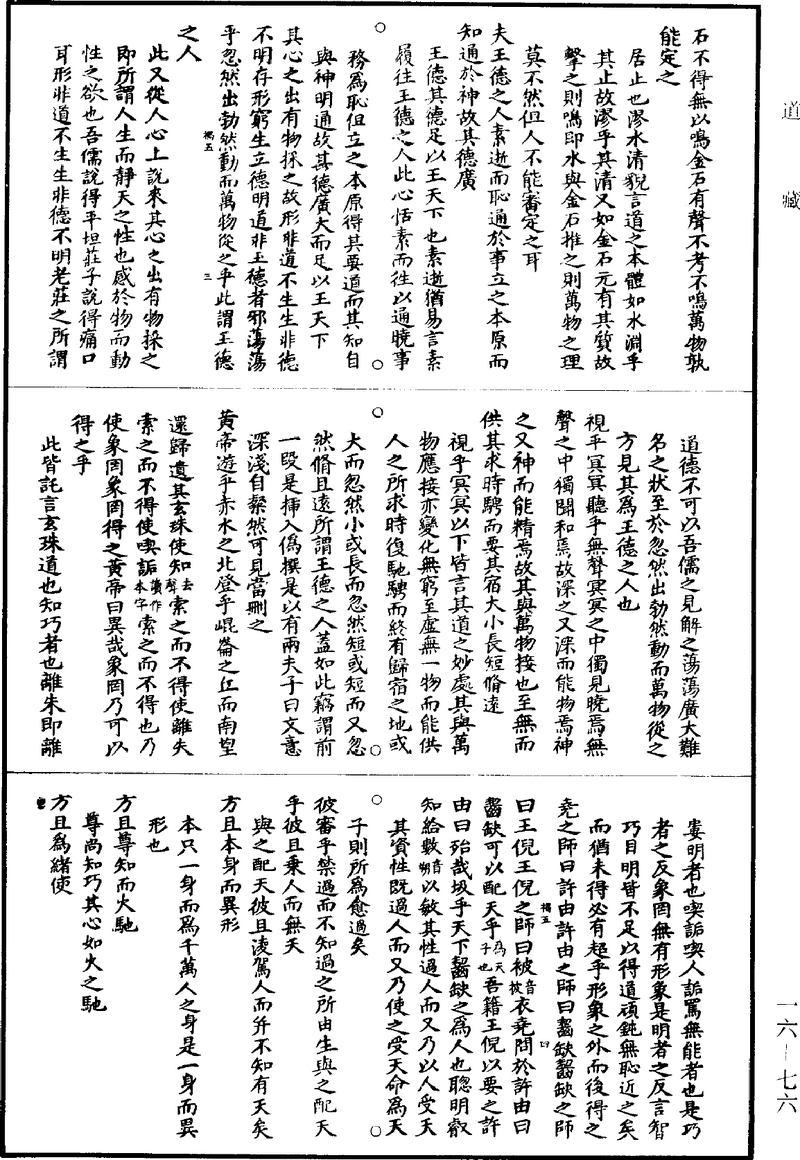 道藏
石不得無以鳴金石有聲不考不鳴萬物孰
能定之
居止也漻水清貌言道之本體如水淵乎
其止故漻乎其清又如金石元有其質故
擊之則鳴即水與金石推之則萬物之理
莫不然但人不能審定之耳
夫王德之人素逝而恥通於事立之本原而
知通於神故其德廣
王德其德足以王天下也素逝猶易言素
履往王德之人此心恬素而往以通曉事
務為恥但立之本原得其要道而其知自
與神明通故其德廣大而足以王天下
其心之出有物採之故形非道不生生非德
不明存形窮生立德明道非王德者邪蕩蕩
乎忽然出勃然動而萬物從之乎此謂王德
之人
此又從人心上說來其心之出有物採之
即所謂人生而靜天之性也感於物而動
性之欲也吾儒說得平坦莊子說得痛口
耳形非道不生生非德不明老莊之所謂
道德不可以吾儒之見解之蕩蕩廣大難
名之狀至於忽然出勃然動而萬物從之
方見其為王德之人也
視乎冥冥聽乎無聲冥冥之中獨見曉焉無
聲之中獨聞和焉故深之又深而能物焉神
之又神而能精焉故其與萬物接也至無而
供其求時騁而要其宿大小長短脩遠
視乎冥冥以下皆言其道之妙處其與萬
物應接亦變化無窮至虛無一物而能供
人之所求時復馳騁而終有歸宿之地或
大而忽然小或長而忽然短或短而又忽
然脩且遠所謂王德之人蓋如此竊謂前
一段是揷入偽撰是以有兩夫子曰文意
深淺自粲然可見當刪之
黃帝遊乎赤水之北登乎崐崙之丘而南望
還歸遺其玄珠使知去聲索之而不得使離朱
索之而不得使喫詬讀作本字索之而不得也乃
使象罔象罔得之黃帝曰異哉象罔乃可以
得之乎
此皆託言玄珠道也知巧者也離朱即離
婁明者也喫詬喫人詬罵無能者也是巧
者之反象罔無有形象是明者之反言智
巧目明皆不足以得道頑鈍無恥近之矣
而猶未得必有超乎形象之外而後得之
堯之師曰許由許由之師曰齧缺齧缺之師
曰王倪王倪之師曰被音披衣堯問於許由曰
齧缺可以配天乎為天子也吾籍王倪以要之許
由曰殆哉圾乎天下齧缺之為人也聰明叡
知給數音朔以敏其性過人而又乃以人受天
其資性既過人而又乃使之受天命為天
子則所為愈過矣
彼審乎禁過而不知過之所由生與之配天
乎彼且乘人而無天
與之配天彼且淩駕人而并不知有天矣
方且本身而異形
本只一身而為千萬人之身是一身而異
形也
方且尊知而火馳
尊尚知巧其心如火之馳
方且為緒使
一六—七六